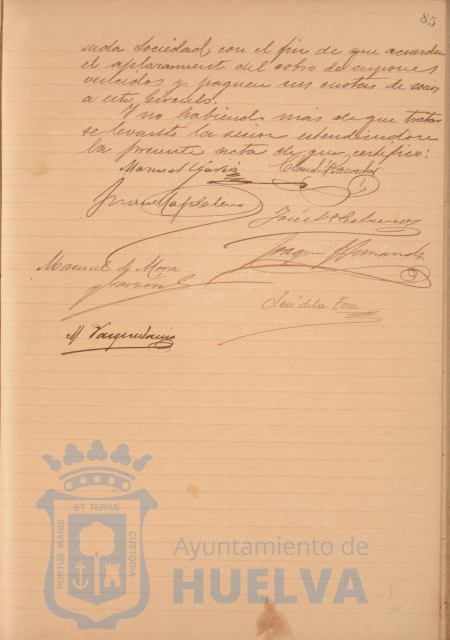 85
nada Sociedad, con el fin de que acuerden
el aplazamiento del cobro de cupones
vencidos y paguen sus cuotas de socios
a este Círculo.
Y no habiendo más de que tratar
se levantó la sesión extendiéndose
la presente acta de que certifico:
Manuel García
Claudio
Juan
Joaquin Hernandez
Manuel de Mora
y Garzón
José de la Torre
M. Vazquez
PORTUS MARIS ET TERRÆ CUSTODIA
Ayuntamiento de
HUELVA